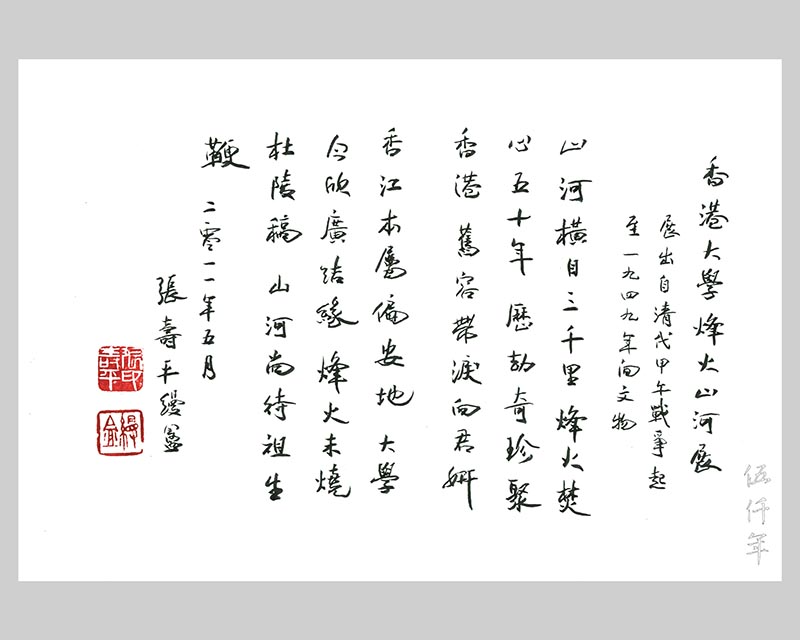 香港大學烽火山河展
展出自清代甲午戰爭起
至一九四九年间文物
山河橫目三千里 烽火焚
心五十年 歷劫奇珍聚
香港 舊容帶淚向君妍
香江本屬偏安地 大學
今欣廣結緣 烽火未燒
杜陵稿 山河尚待祖生
鞭 二零一一年五月
張壽平縵盦
張印壽平
縵盦
伍仟年